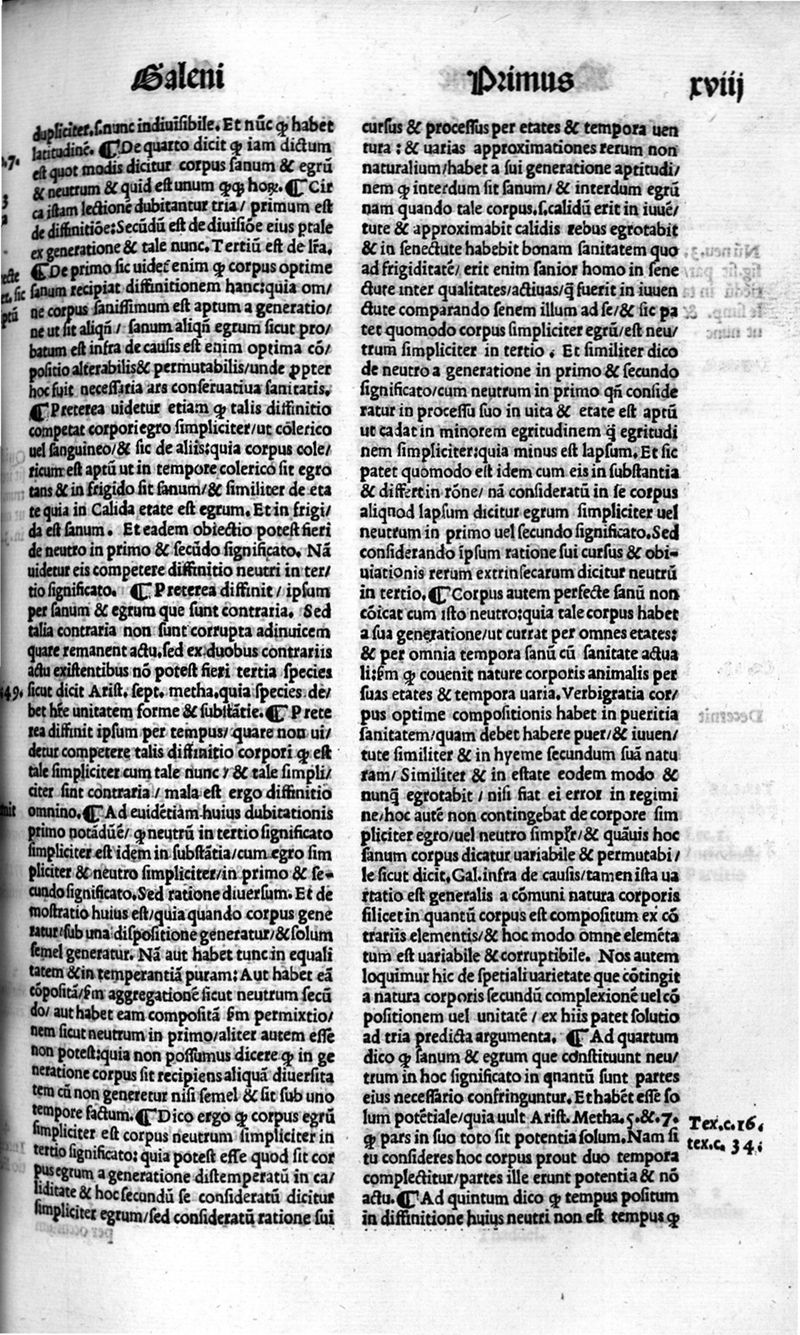 Galeni
Primus
xviij
dupliciter.s.nunc indiuisibile. Et nũc ꝙ habet
latitudinē. ¶ De quarto dicit ꝙ iam dictum
est quot modis dicitur corpus sanum & egrũ
& neutrum & quid est unum quꝙ hoꝝ. ¶ Cir
ca istam lectionē dubitantur tria/ primum est
de diffinitiōe: Secũdũ est de diuisiōe eius ptale
ex generatione & tale nunc. Tertiũ est de lr̃a.
¶ De primo sic uidet̃ enim ꝙ corpus optime
sanum recipiat diffinitionem hanc: quia om/
ne corpus sanissimum est aptum a generatio/
ne ut sit aliqñ/ sanum aliqñ egrum sicut pro/
batum est infra de causis est enim optima cō/
positio alterabilis & permutabilis/unde ꝓpter
hoc fuit necessaria ars conseruatiua sanitatis.
¶ Preterea uidetur etiam ꝙ talis diffinitio
competat corpori egro simpliciter/ut cōlerico
uel sanguineo/& sic de aliis: quia corpus cole/
ricum est aptũ ut in tempore colerico sit egro
tans & in frigido sit sanum/& similiter de eta
te quia in Calida etate est egrum. Et in frigi/
da est sanum. Et eadem obiectio potest fieri
de neutro in primo & secũdo significato. Nā
uidetur eis competere diffinitio neutri in ter/
tio significato. ¶ Preterea diffinit/ ipsum
per sanum & egrum que sunt contraria. Sed
talia contraria non sunt corrupta adinuicem
quare remanent actu. sed ex duobus contrariis
actu existentibus nō potest fieri tertia species
sicut dicit Arist. sept. metha. quia species de/
bet hr̃e unitatem forme & substātie. ¶ Prete
rea diffinit ipsum per tempus/ quare non ui/
detur competere talis diffinitio corpori ꝙ est
tale simpliciter cum tale nunc/ & tale simpli/
citer sint contraria/ mala est ergo diffinitio
omnino. ¶ Ad euidētiam huius dubitationis
primo notādũ ē/ ꝙ neutrũ in tertio significato
simpliciter est idem in substātia/cum egro sim
pliciter & neutro simpliciter/in primo & se-
cundo significato. Sed ratione diuersum. Et de
mostratio huius est/quia quando corpus gene
ratur/sub una dispositione generatur/& solum
semel generatur. Nā aut habet tunc in equali
tatem & in temperantiā puram: Aut habet eā
cōpositā/ſm aggregationē sicut neutrum secũ
do/ aut habet eam compositā ſm permixtio/
nem sicut neutrum in primo/aliter autem esse
non potest: quia non possumus dicere ꝙ in ge
neratione corpus sit recipiens aliquā diuersita
tem cũ non generetur nisi semel & sit sub uno
tempore factum. ¶ Dico ergo ꝙ corpus egrũ
simpliciter est corpus neutrum simpliciter in
tertio significato: quia potest esse quod sit cor
pus egrum a generatione distemperatũ in ca/
liditate & hoc secundũ se consideratũ dicitur
simpliciter egrum/sed consideratũ ratione sui
cursus & processus per etates & tempora uen
tura: & uarias approximationes rerum non
naturalium/habet a sui generatione aptitudi/
nem ꝙ interdum sit sanum/ & interdum egrũ
nam quando tale corpus.s.calidũ erit in iuuē/
tute & approximabit calidis rebus egrotabit
& in senectute habebit bonam sanitatem quo
ad frigiditatē/ erit enim sanior homo in sene
ctute inter qualitates/actiuas/q̃ fuerit in iuuen
ctute comparando senem illum ad se/& sic pa
tet quomodo corpus simpliciter egrũ/est neu/
trum simpliciter in tertio. Et similiter dico
de neutro a generatione in primo & secundo
significato/cum neutrum in primo qñ conside
ratur in processu suo in uita & etate est aptũ
ut cadat in minorem egritudinem q̃ egritudi
nem simpliciter: quia minus est lapsum. Et sic
patet quomodo est idem cum eis in substantia
& differt in rōne/ nā consideratũ in se corpus
aliquod lapsum dicitur egrum simpliciter uel
neutrum in primo uel secundo significato. Sed
considerando ipsum ratione sui cursus & obi-
uiationis rerum extrinsecarum dicitur neutrũ
in tertio. ¶ Corpus autem perfecte sanũ non
cōicat cum isto neutro: quia tale corpus habet
a sua generatione/ut currat per omnes etates:
& per omnia tempora sanũ cũ sanitate actua
li: ſm ꝙ couenit nature corporis animalis per
suas etates & tempora uaria. Verbigratia cor/
pus optime compositionis habet in pueritia
sanitatem/quam debet habere puer/& iuuen/
tute similiter & in hyeme secundum suā natu
ram/ Similiter & in estate eodem modo &
nunq̃ egrotabit/ nisi fiat ei error in regimi
ne/hoc autē non contingebat de corpore sim
pliciter egro/uel neutro simpl̃r/& quāuis hoc
sanum corpus dicatur uariabile & permutabi/
le sicut dicit. Gal. infra de causis/tamen ista ua
rtatio est generalis a cōmuni natura corporis
silicet in quantũ corpus est compositum ex cō
trariis elementis/& hoc modo omne elemēta
tum est uariabile & corruptibile. Nos autem
loquimur hic de spetiali uarietate que cōtingit
a natura corporis secundũ complexionē uel cō
positionem uel unitatē/ ex hiis patet solutio
ad tria predicta argumenta. ¶ Ad quartum
dico ꝙ sanum & egrum que constituunt neu/
trum in hoc significato in quantũ sunt partes
eius necessario confringuntur. Et habēt esse so
lum potētiale/quia uult Arist. Metha. 5. &. 7.
ꝙ pars in suo toto sit potentia solum. Nam si
tu consideres hoc corpus prout duo tempora
complectitur/partes ille erunt potentia & nō
actu. ¶ Ad quintum dico ꝙ tempus positum
in diffinitione huius neutri non est tempus ꝙ
Tex.c.16.
tex.c. 34.